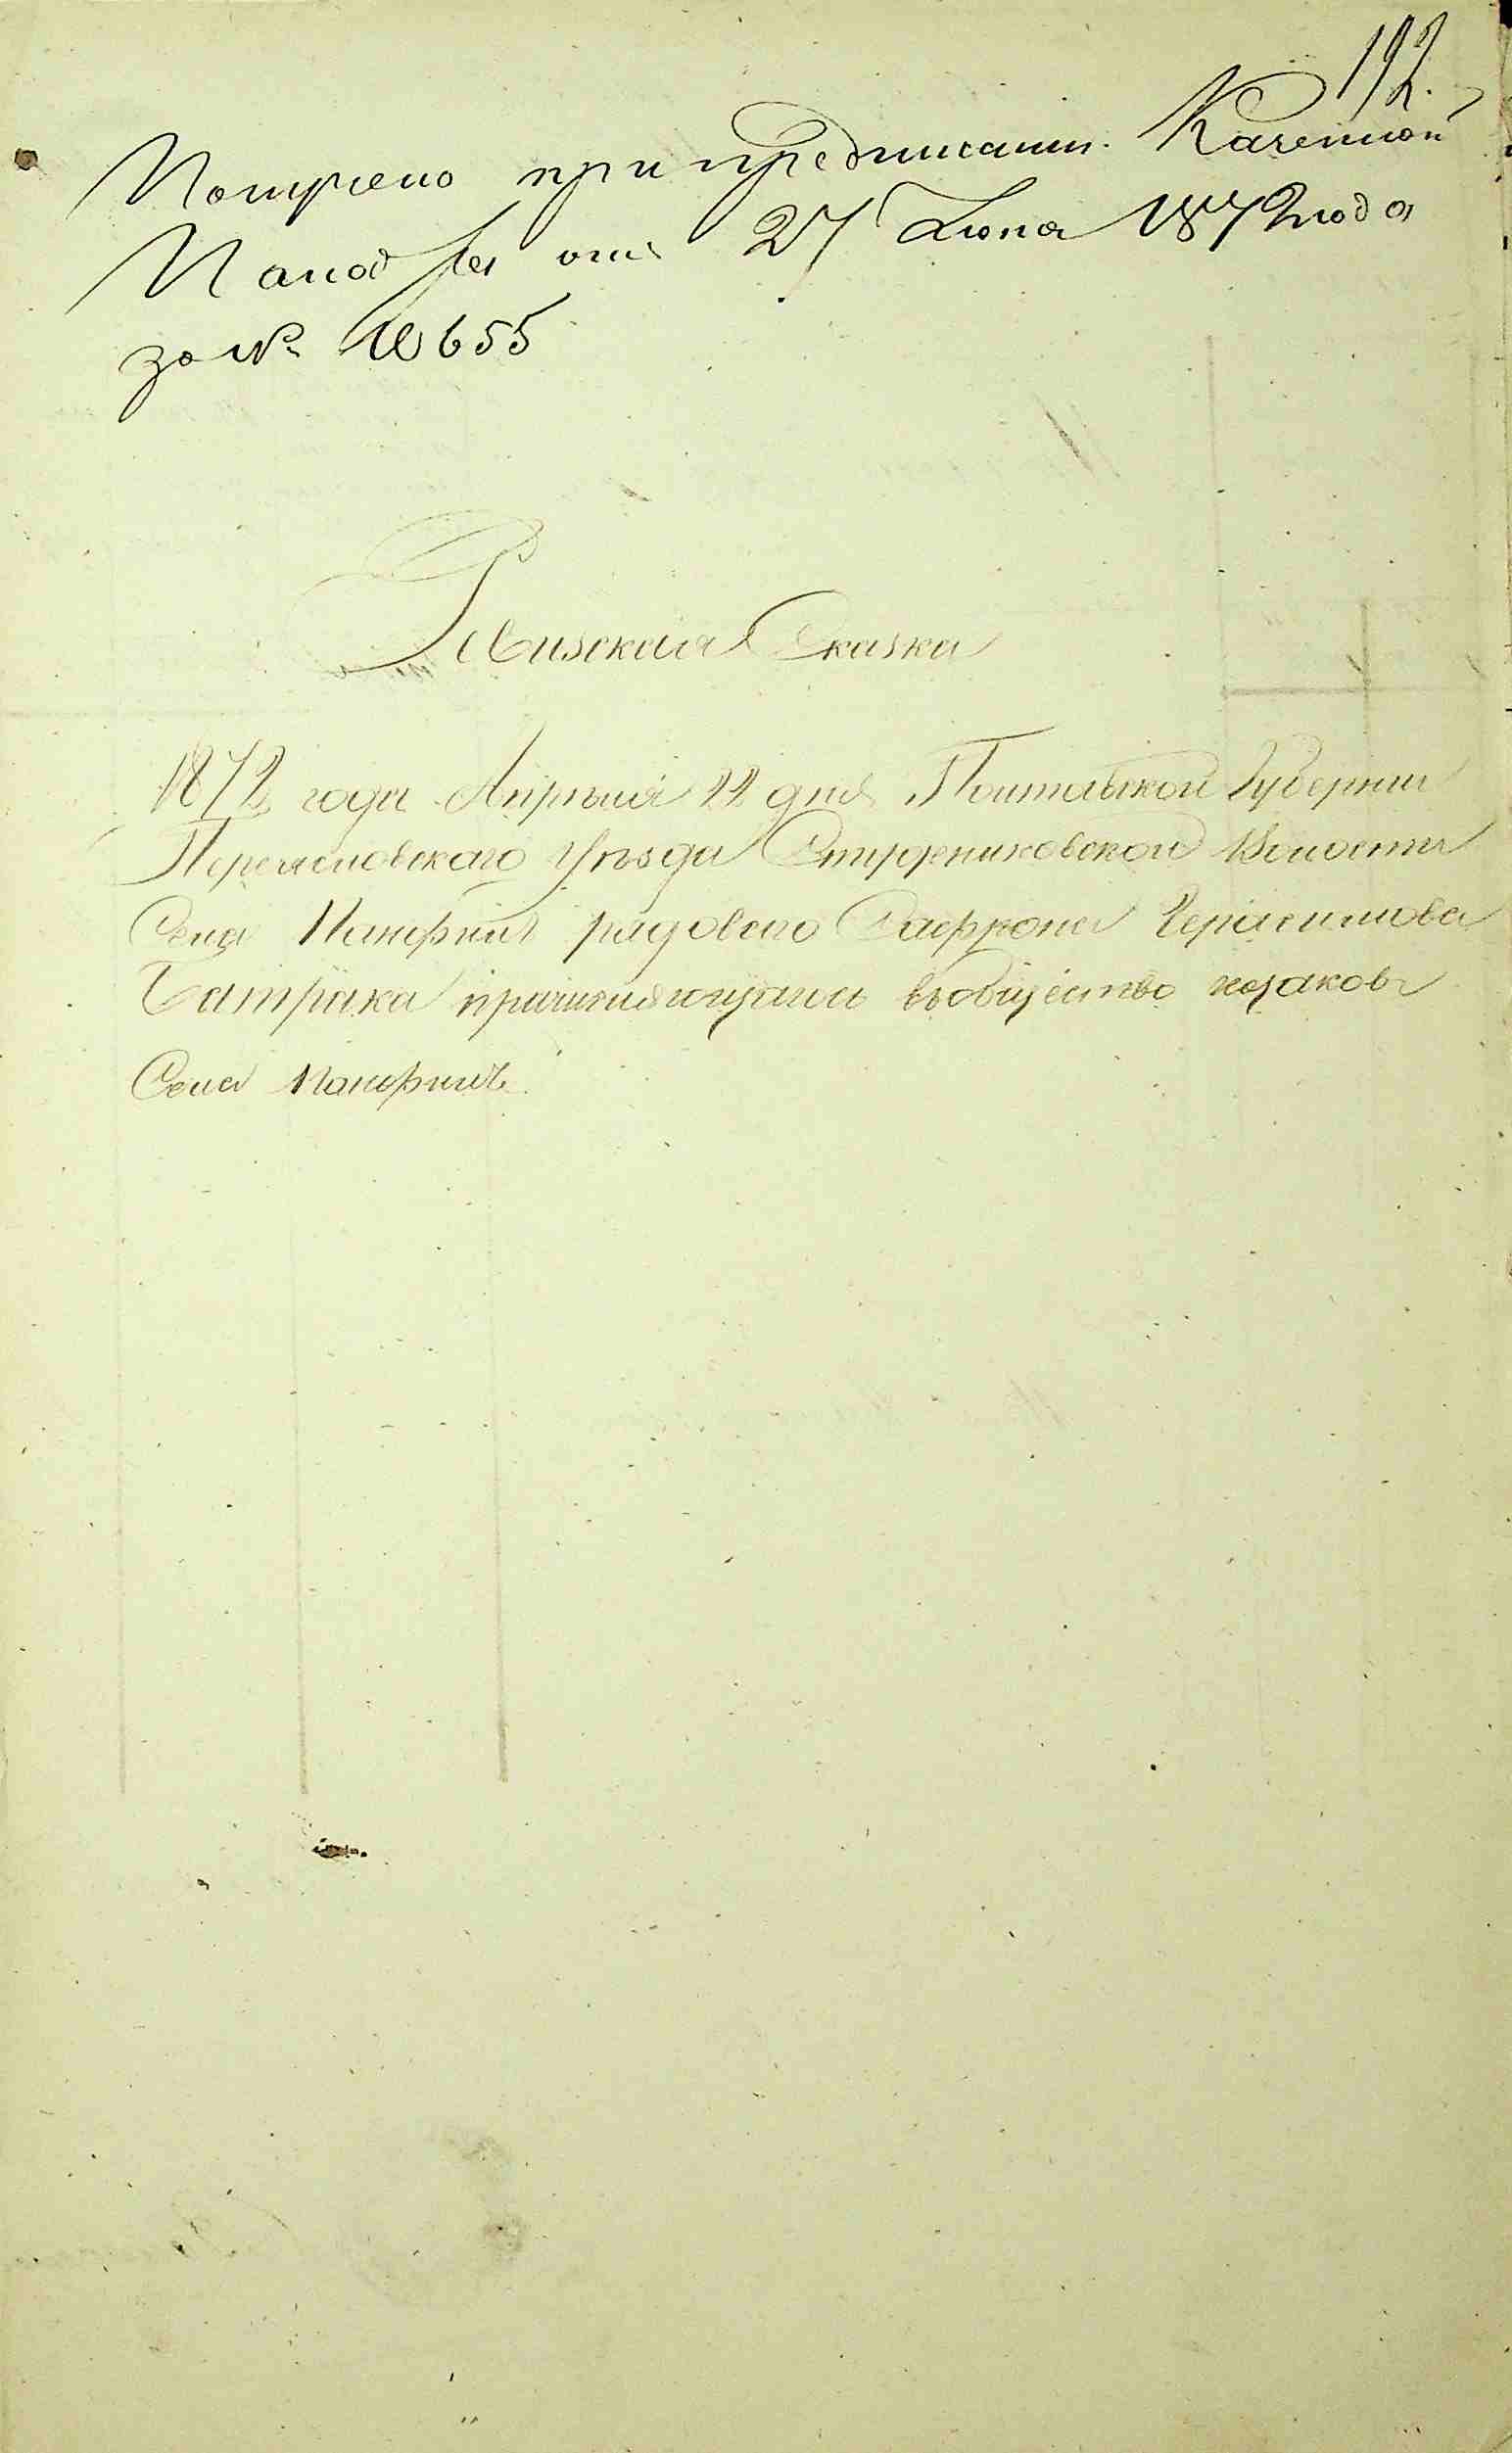 192.
Получено при предписании Казенной
Палаты от 27 Июня 1872 года
за № 10655
Ревизская Сказка
1872 года Апреля 22 дня Полтавской Губернии
Переяславского Уезда Строковской Волости
Села Панфил рядового Сафрона Герасимова
Батрака причисляющагося въ общество козаковъ
Села Панфилъ